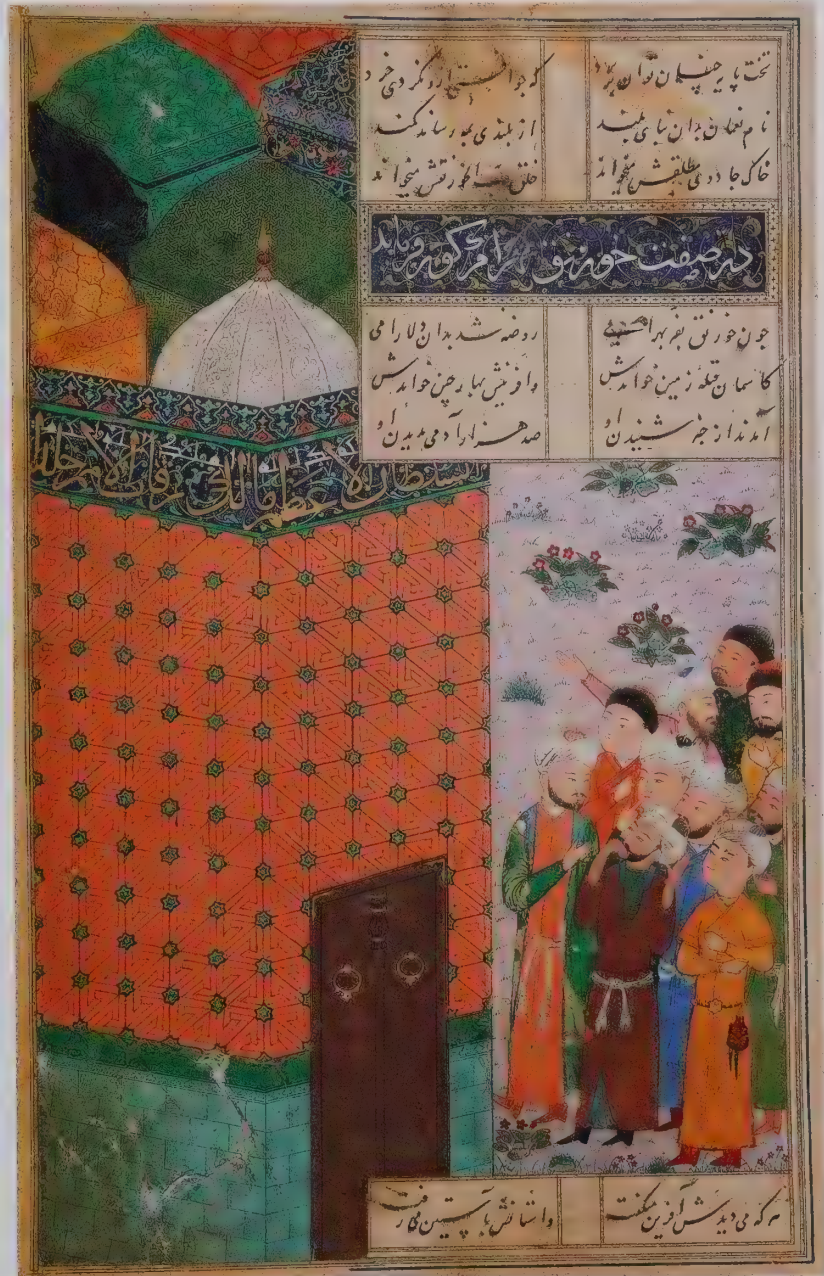 تخت پایه چنان توان برد که جو افتی ازو نکردی خرد
نام نعمان بدان بنای بلند از بلندی بمه رساند کمند
خاک جادوی مطلقش میخواند خلق رب الخورنقش میخواند
در صفت خورنق بهرام گور فرماید
جون خورنق بفر بهرامی روضه شد بدان دلارامی
کاسمان قبله زمین خواندش وافرینش بهار چین خواندش
آمدند از خبر شنیدن او صد هزار آدمی بدیدن او
السلطان الاعظم مالک رقاب الامم خلد
هر که می دیدش آفرین میگفت واستانش بآستین میرفت